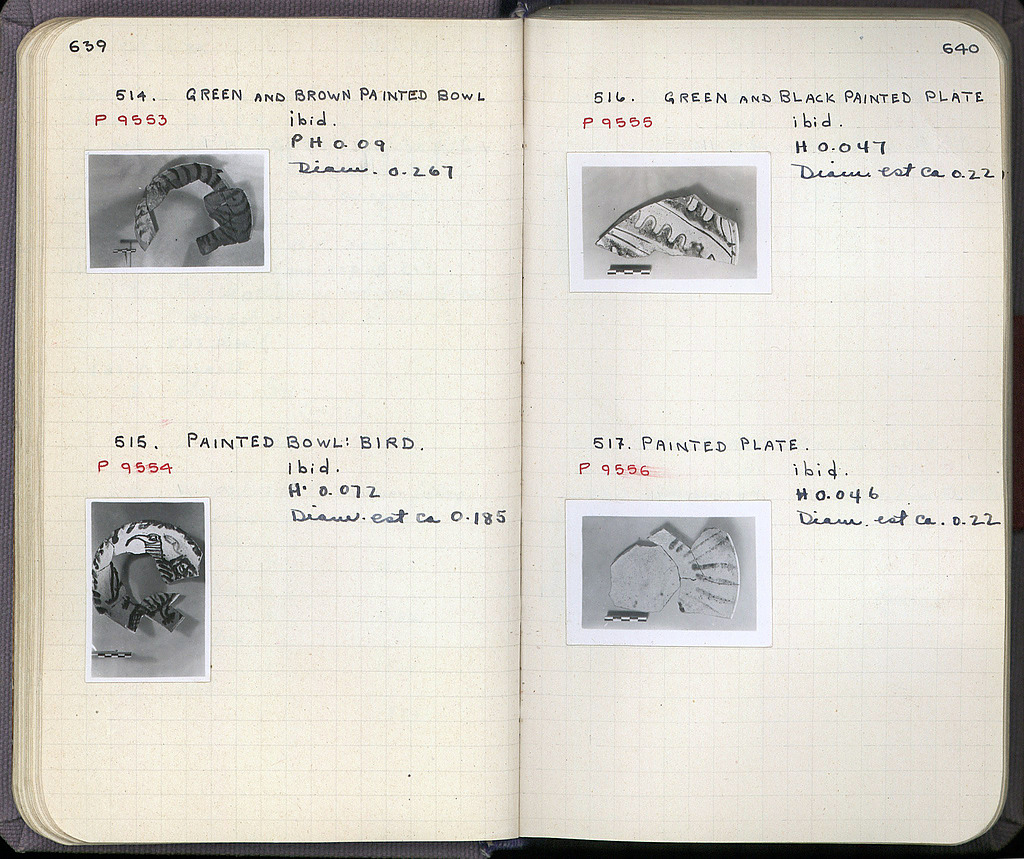 639
514. GREEN AND BROWN PAINTED BOWL
P 9553
ibid.
P H 0.09
Diam. 0.267
515. PAINTED BOWL: BIRD.
P 9554
ibid.
H. 0.072
Diam. est ca 0.185
640
516. GREEN AND BLACK PAINTED PLATE
P 9555
ibid.
H 0.047
Diam. est ca 0.22
517. PAINTED PLATE.
P 9556
ibid.
H 0.046
Diam. est ca. 0.22